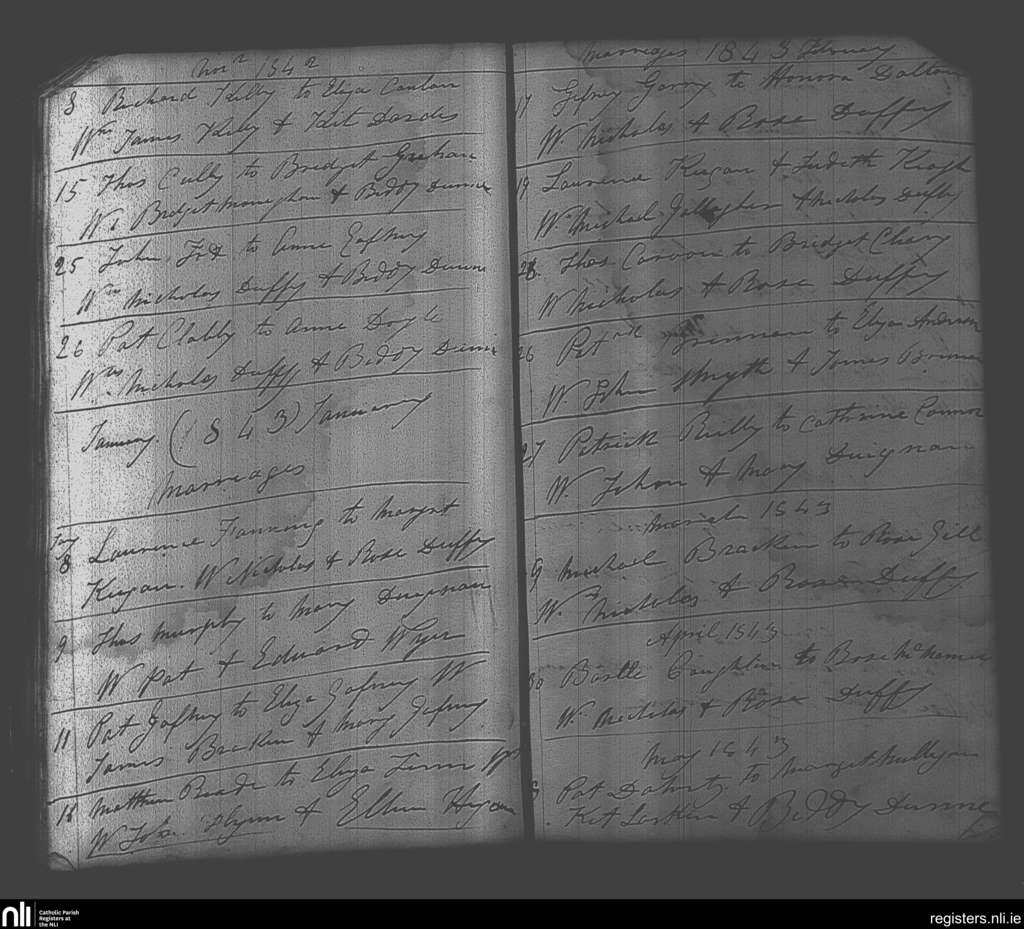 Novr 1842
8 Richard Kelly to Eliza Conlan
Wss James Kelly & Kit Dardis
15 Thos Cully to Bridget Graham
Ws Bridget Monighan & Biddy Dunne
25 John to Anne Gafney
Wss Nicholas Duffy & Biddy Dunne
26 Pat Clabby to Anne Doyle
Wss Nicholas Duffy & Biddy Dunne
January (1843) January
Marriages
Jay
8 Laurence Fanning to Margt
Keegan. W Nicholas & Rose Duffy
9 Thos Murphy to Mary Duignan
W Pat & Edward Wyer
11 Pat Gafney to Eliza Gafney W
James Bracken & Mary Gafney
Matthew Reade to Eliza
W John Flynn & Ellen Hyan
Marriages 1843 February
17 Gefrey Garry to Honora Dalton
W Nicholas & Rose Duffy
19 Laurence Keegan & Judith Keogh
W. Michael Gallagher & Nicholas Duffy
Thos to Bridget Clary
W Nicholas & Rose Duffy
26 Patrick Brennan to Eliza Anderson
W John Smyth & James Brennan
27 Patrick Reilly to Cathrine Connor
W. John & Mary Duignan
March 1843
9 Michael Bracken to Rose Gill
W. Nicholas & Rose Duffy
April 1843
30 Bartle Coughlin to Rose
W. Nicholas & Rose Duffy
May 1843
Pat Doherty to Margret Mulligan
Kit Larkin & Biddy Dunne
nli
Catholic Parish
Registers at
the NLI
registers.nli.ie